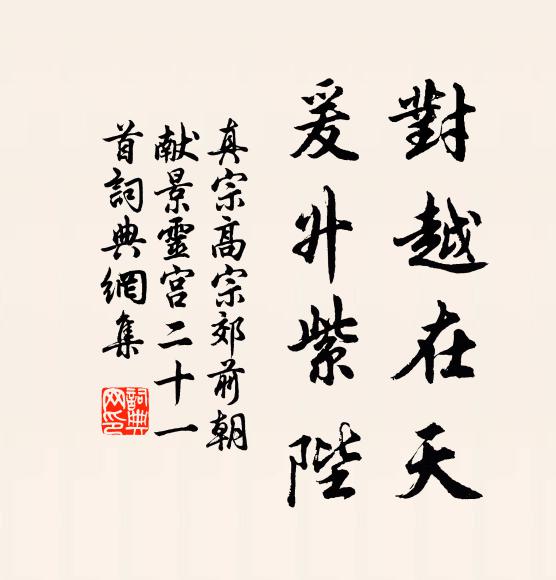 對越在天
爰升紫陛
真宗高宗郊前朝
献景靈宫二十一
首詞典網集
詞典
网印